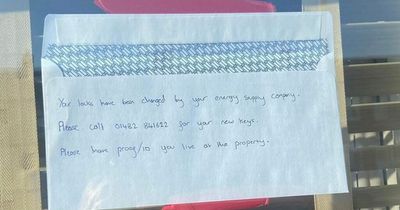 Your locks have been changed by your energy supply company.
Please call 01482 841622 for your new keys.
Please have proof/ID you live at this property.